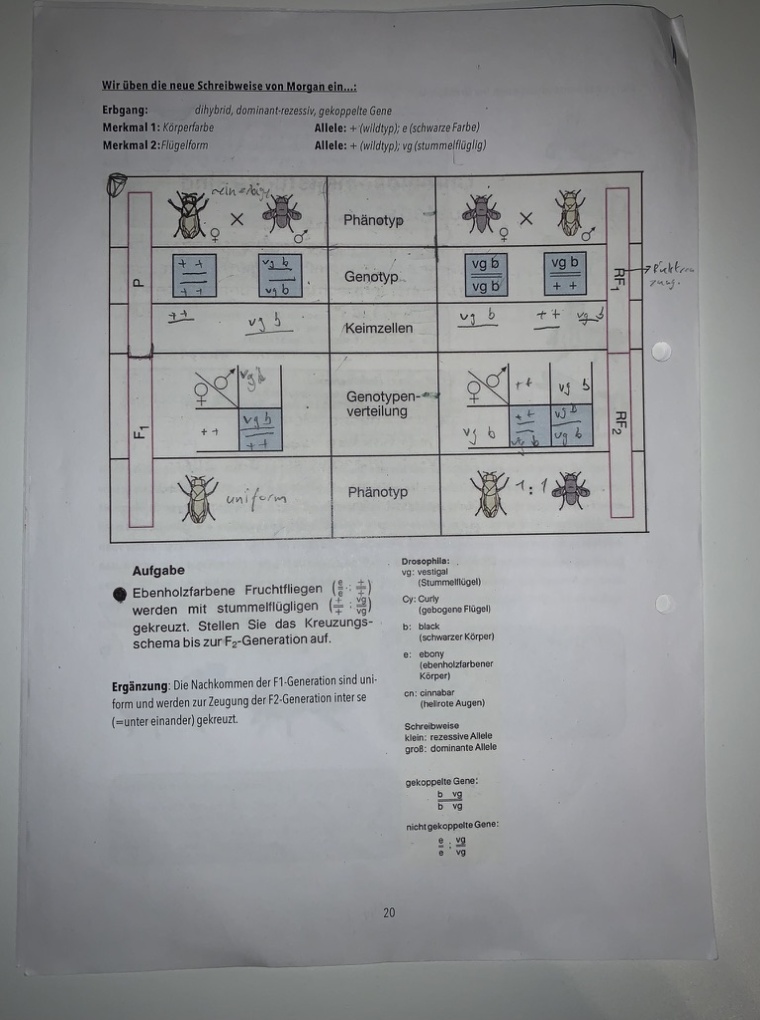 Wir üben die neue Schreibweise von Morgan ein...:
Erbgang: dihybrid, dominant-rezessiv, gekoppelte Gene
Merkmal 1: Körperfarbe Allele: + (wildtyp); e (schwarze Farbe)
Merkmal 2:Flügelform Allele: + (wildtyp); vg (stummelflüglig)
P
♀ × ♂
Phänotyp
♀ × ♂
RF1
+ +
+ +
vg b
vg b
Genotyp
vg b
vg b
vg b
+ +
+ +
vg b
Keimzellen
vg b
+ +
vg b
F1
♀ ♂
+ +
vg b
+ +
Genotypen-
verteilung
♀ ♂
+ +
vg b
vg b
+ +
vg b
vg b
vg b
RF2
uniform
Phänotyp
1 : 1
Aufgabe
Ebenholzfarbene Fruchtfliegen (e/e : +/+)
werden mit stummelflügligen (+/+ : vg/vg)
gekreuzt. Stellen Sie das Kreuzungs-
schema bis zur F2-Generation auf.
Ergänzung: Die Nachkommen der F1-Generation sind uni-
form und werden zur Zeugung der F2-Generation inter se
(=unter einander) gekreuzt.
Drosophila:
vg: vestigal
(Stummelflügel)
Cy: Curly
(gebogene Flügel)
b: black
(schwarzer Körper)
e: ebony
(ebenholzfarbener
Körper)
cn: cinnabar
(hellrote Augen)
Schreibweise
klein: rezessive Allele
groß: dominante Allele
gekoppelte Gene:
b vg
b vg
nicht gekoppelte Gene:
e : vg
e vg
20